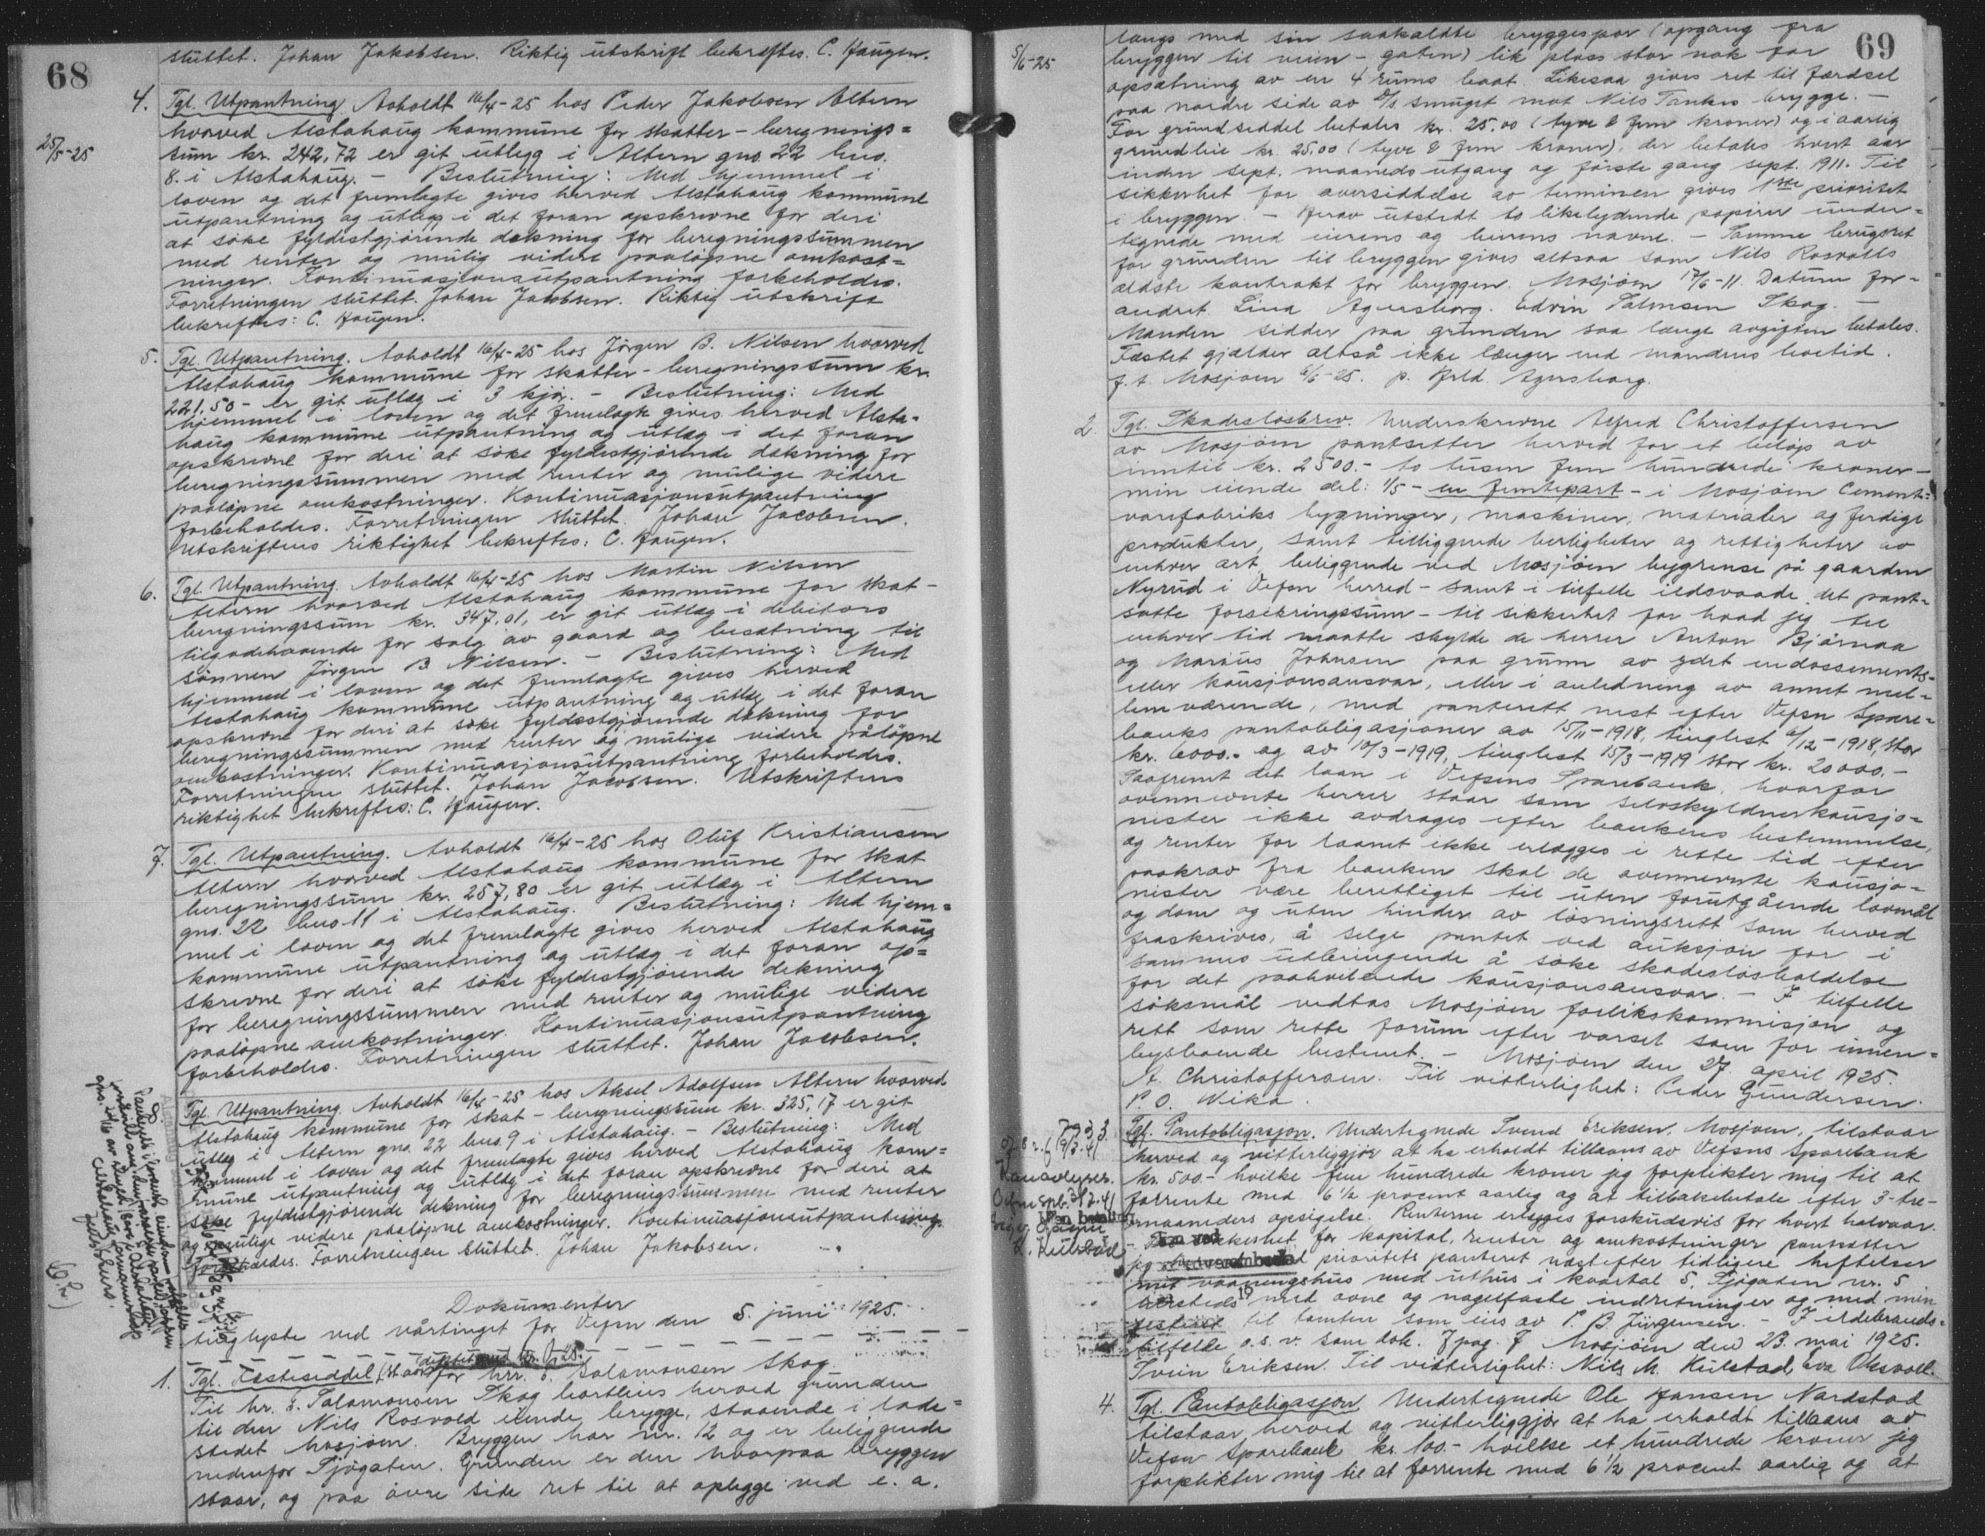 68
sluttet. Johan Jakobsen. Riktig utskrift bekreftes. C. Haugen.
4. Tgl. Utpantning. Avholdt 16/4-25 hos Peder Jakobsen Altern
25/5-25
hvorved Alstahaug kommune for skatter - beregnings=
sum kr. 242,72 er git utlegg i Altern gno. 22 bno.
8. i Alstahaug. - Beslutning: Med hjemmel i
loven og det fremlagte gives herved Alstahaug kommune
utpantning og utlegg i det foran opskrevne for deri
at söke fyldestgjörende dekning for beregningssummen
med renter og mulig videre paalöpne omkost=
ninger. Kontinuasjonsutpantning forbeholdes.
Forretningen sluttet. Johan Jakobsen. Riktig utskrift
bekreftes: C. Haugen.
5. Tgl. Utpantning. Avholdt 16/4-25 hos Jörgen B. Nilsen hvorved
Alstahaug kommune for skatter - beregningssum kr.
221.50 - er git utlæg i 3 kjör. - Beslutning: Med
hjemmel i loven og det fremlagte gives herved Alsta-
haug kommune utpantning og utlæg i det foran
opskrevne for deri at söke fyldestgjörende dekning for
beregningssummen med renter og mulige videre
paalöpne omkostninger. Kontinuasjonsutpantning
forbeholdes. Forretningen sluttet. Johan Jacobsen.
Utskriftens riktighet bekreftes: C. Haugen.
6. Tgl. Utpantning. Avholdt 16/4-25 hos Martin Nilsen
Altern hvorved Alstahaug kommune for skat-
beregningssum kr. 347,01, er git utlæg i debitors
tilgodehavende for salg av gaard og besætning til
sönnen Jörgen B Nilsen. - Beslutning: Med
hjemmel i loven og det fremlagte gives herved
Alstahaug kommune utpantning og utlæg i det foran
opskrevne for deri at söke fyldestgjörende dekning for
beregningssummen med renter og mulige videre pålöpne
omkostninger. Kontinuasjonsutpantning forbeholdes.
Forretningen sluttet. Johan Jacobsen. Utskriftens
riktighet bekreftes: C. Haugen.
7. Tgl. Utpantning. Avholdt 16/4-25 hos Oluf Kristiansen
Altern hvorved Alstahaug kommune for skat
beregningssum kr. 257,80 er git utlæg i Altern
gno. 22 bno. 11 i Alstahaug. Beslutning: Med hjem=
mel i loven og det fremlagte gives herved Alstahaug
kommune utpantning og utlæg i det foran op=
skrevne for deri at söke fyldestgjörende dekning
for beregningssummen med renter og mulige videre
paalöpne omkostninger. Kontinuasjonsutpantning
forbeholdes. Forretningen sluttet. Johan Jacobsen.
Tgl. Utpantning. Avholdt 16/4-25 hos Aksel Adolfsen Altern hvorved
Alstahaug kommune for skat - beregningssum kr. 325,17 er git
utlæg i Altern gno. 22 bno. 9 i Alstahaug. - Beslutning: Med
hjemmel i loven og det fremlagte gives herved Alstahaug kom=
mune utpantning og utlæg i det foran opskrevne for deri at
söke fyldestgjörende dekning for beregningssummen med renter
og mulige videre paalöpne omkostninger. Kontinuasjonsutpantning
forbeholdes. Forretningen sluttet. Johan Jakobsen.
Dokumenter
tinglyste ved vårtinget for Vefsn den 5. juni 1925.
1. Tgl. Festeseddel for hrr. E. Salamonsen Skog.
Til hr. E. Salamonsen Skog bortleies herved grunden
til den Nils Rosvold eiende brygge, staaende i lade=
stedet Mosjöen. Bryggen har nr. 12 og er beliggende
nedenfor Sjögaten. Grunden er den hvorpaa bryggen
staar, og paa övre side ret til at oplegge ved e. a.
69
5/6-25
langs med sin saakaldte bryggespor (opgang fra
bryggen til veien - gaten) lik plass stor nok for
opsætning av en 4 rums baat. Likesaa gives ret til færdsel
paa nordre side av d/s smuget mot Nils Tankes brygge. -
For grundseddel betales kr. 25.00 (tyve & fem kroner) og i aarlig
grundleie kr. 25.00 (tyve & fem kroner), der betales hvert aar
inden sept. maaneds utgang og förste gang sept. 1911. Til
sikkerhet for aversiddelse av terminen gives 1ste prioritet
i bryggen. - Herav utstedt to likelydende papirer under=
tegnede med eierens og leierens navne. - Samme brugsret
for grunden til bryggen gives altsaa som Nils Rosvolls
ældste kontrakt for bryggen. Mosjöen 17/6-11. Datum for=
andret. Lina Agersborg. Edvin Salmsen Skog. -
Manden sidder paa grunden saa længe avgiften betales.
Fæstet gjælder altså ikke længer end mandens levetid.
f. t. Mosjöen 6/6-25. p. Hrld. Agersborg.
2. Tgl. Skadeslösbrev. Underskrevne Alfred Christoffersen
av Mosjöen pantsetter herved for et belöp av
inntil kr. 2500.- to tusen fem hundrede kroner -
min eiende del: 1/5 - en femtepart - i Mosjöen Cement=
varefabriks bygninger, maskiner, materialer og ferdige
produkter, samt tilliggende herligheter og rettigheter av
enhver art, beliggende ved Mosjöen bygrense på gaarden
Nyrud i Vefsn herred - samt i tilfelle ildsvaade det pant=
satte forsikringssum - til sikkerhet for hvad jeg til
enhver tid maatte skylde de herrer Anton Bjørnaa
og Marius Johnsen paa grunn av ydet endossements-
eller kausjonsansvar, eller i anledning av annet mel-
lemværende, med panterett nest efter Vefsn Spare=
banks pantobligasjoner av 15/11-1918, tinglest 6/12-1918, stor
kr. 6000.- og av 10/3-1919, tinglest 15/3-1919 stor kr. 20000.-
Saafremt det laan i Vefsens Sparebank, hvorfor
ovennevnte herrer staar som selvskyldnerkausjo=
nister ikke avdrages efter bankens bestemmelse,
og renter for laanet ikke erlægges i rette tid efter
paakrav fra banken skal de ovennevnte kausjo=
nister være berettiget til uten forutgående lovmål
og dom og uten hinder av lösningsrett som herved
fraskrives, å selge pantet ved auksjon for i
sammes utbringende å söke skadeslösholdelse
for det paahvilende kausjonsansvar. - I tilfelle
söksmål vedtas Mosjöen forlikskommisjon og
rett som rette forum efter varsel som for innen=
bysboende bestemt. - Mosjöen den 27 april 1925.
A. Christoffersen. Til vitterlighet: Peder Gundersen.
P. O. Vika.
Tgl. Pantobligasjon. Undertegnede Svend Eriksen, Mosjöen, tilstaar
herved og vitterliggjör at ha erholdt tillaans av Vefsns Sparebank
kr. 500.- hvilke fem hundrede kroner jeg forplikter mig til at
forrente med 6 1/2 procent aarlig og at tilbakebetale efter 3 - tre-
maaneders opsigelse. Renterne erlegges forskudsvis for hvert halvaar.
- sikkerhet for kapital, renter og omkostninger pantsætter
jeg prioritets panteret næst efter tidligere heftelser
mit vaaningshus med uthus i kvartal 5, Sjögaten nr. 5
hersteds med ovne og nagelfaste indretninger og med min
festeret til tomten som eies av P. B. Jürgensen. - I ildebrands-
tilfelle o.s.v. som dok. 7 pag. 7 Mosjöen den 23. mai 1925.
Svein Eriksen. Til vitterlighet: Nils M. Kulstad, Eva Oksvoll.
4. Tgl. Pantobligasjon Undertegnede Ole Hansen Nardstad
tilstaar herved og vitterliggjör at ha erholdt tillaans av
Vefsn Sparebank kr. 100.- hvilke et hundrede kroner jeg
forplikter mig til at forrente med 6 1/2 procent aarlig og at